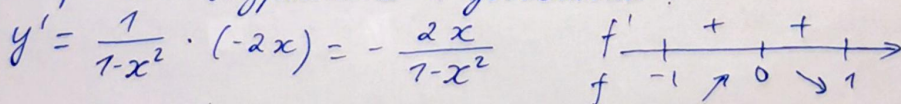 y' = 1/(1-x²) · (-2x) = - 2x/(1-x²)
f' + +
f -1 ↗ 0 ↘ 1